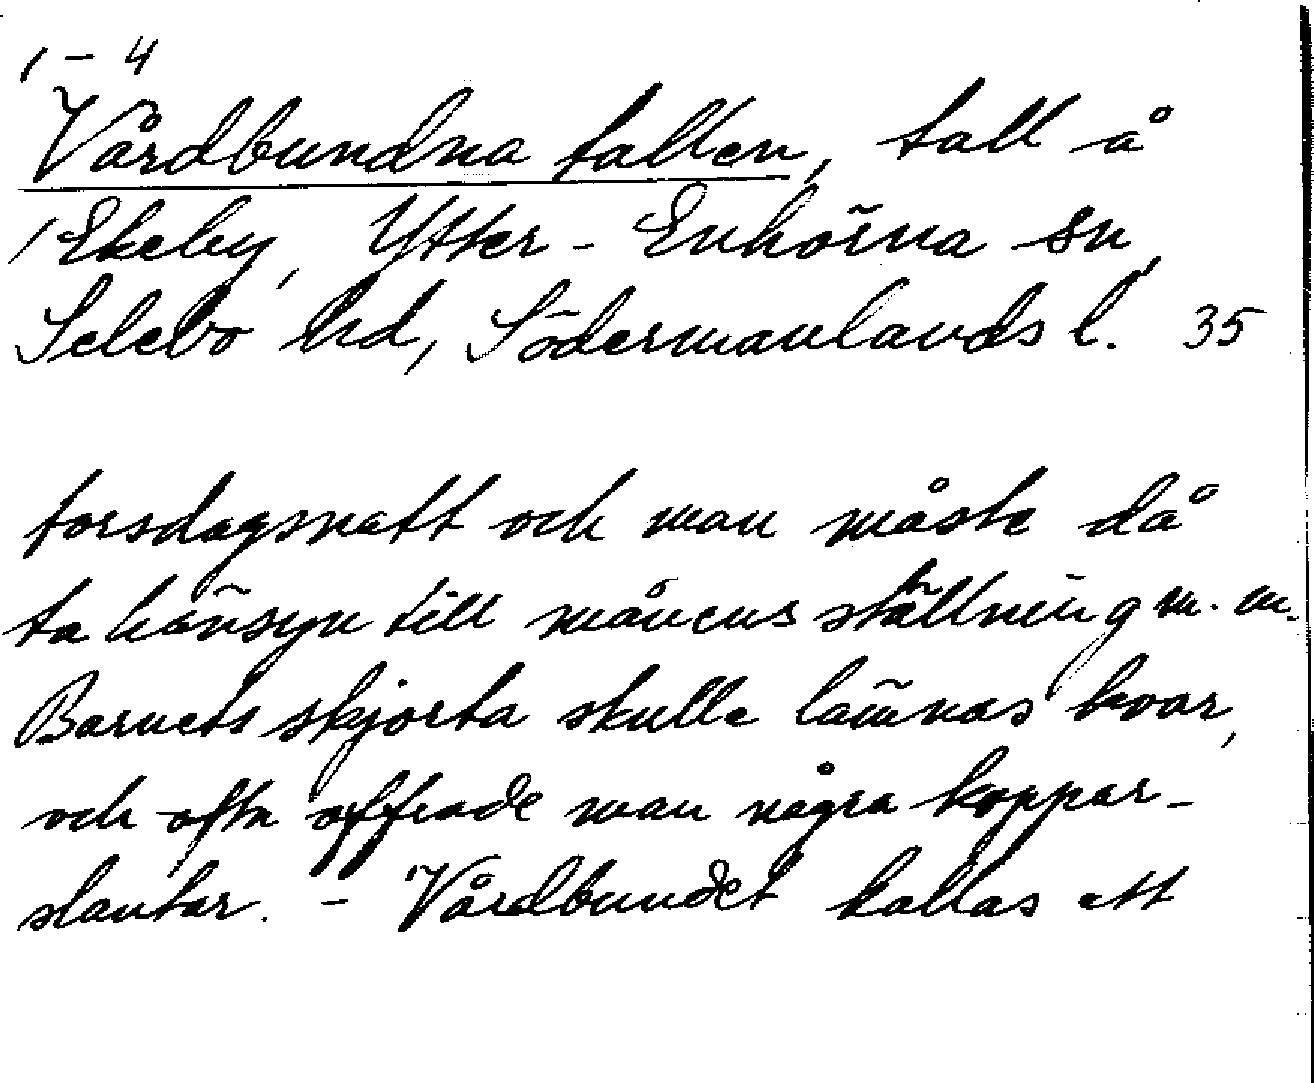 1 - 4
Vårdbundna tallen, tall å
Ekeby, Ytter - Enhörna sn,
Selebo hd, Södermanlands l. 35
torsdagsnatt och man måste då
ta hänsyn till månens ställning m. m.
Barnets skjorta skulle lämnas kvar,
och ofta offrade man några koppar-
slantar. - Vårdbundet kallas ett